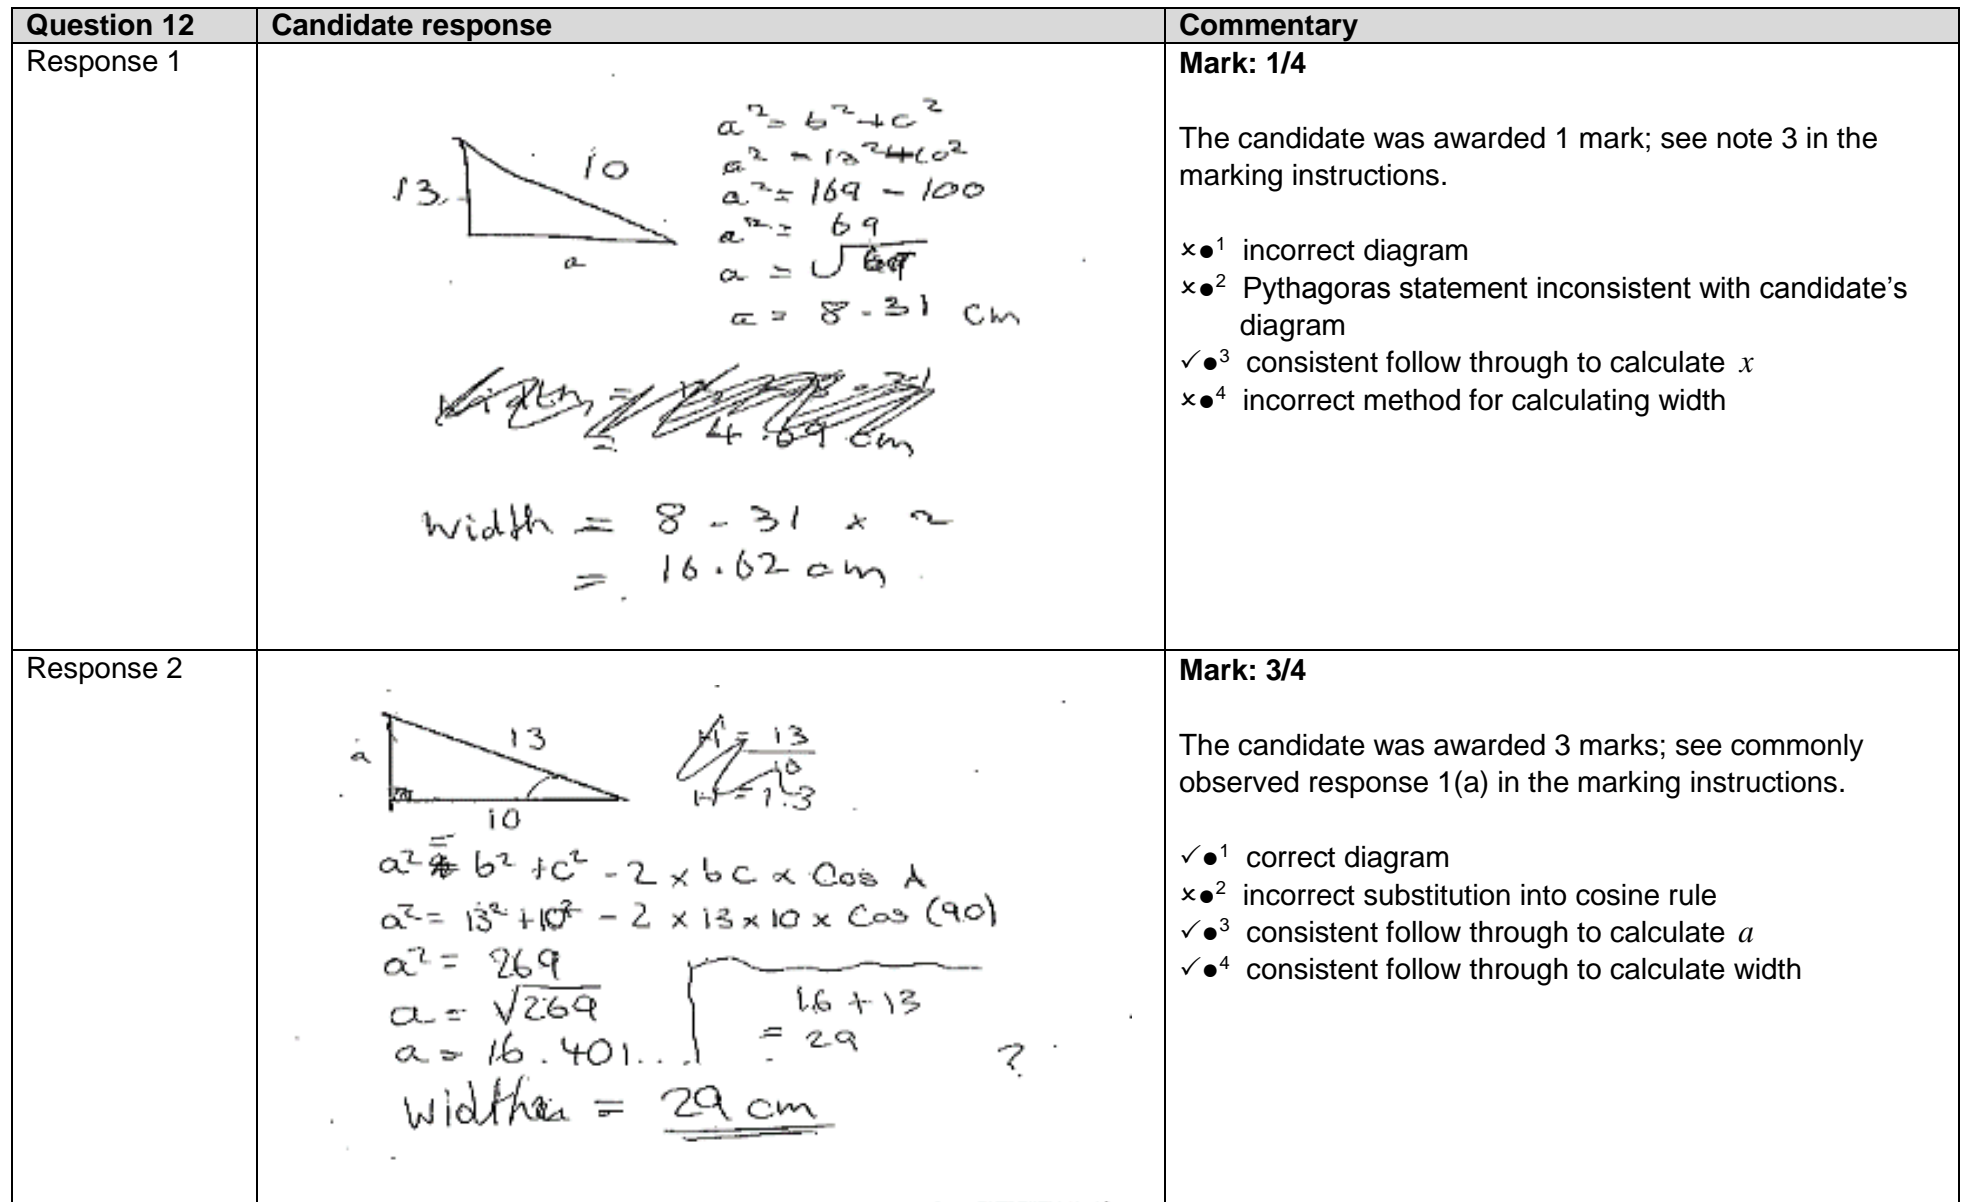 Question 12 Candidate response Commentary
Response 1
13
10
a
a² = b² + c²
a² = 13² + 10²
a² = 169 - 100
a² = 69
a = √69
a = 8.31 cm
4.69 cm
Width = 8.31 x 2
= 16.62 cm
Mark: 1/4
The candidate was awarded 1 mark; see note 3 in the
marking instructions.
×●¹ incorrect diagram
×●² Pythagoras statement inconsistent with candidate's
diagram
✓●³ consistent follow through to calculate x
×●⁴ incorrect method for calculating width
Response 2
a
13
10
H = 13/10
H = 1.3
a² = b² + c² - 2 x bc x Cos A
a² = 13² + 10² - 2 x 13 x 10 x Cos (90)
a² = 269
a = √269
a = 16.401...
16 + 13
= 29
?
Width = 29 cm
Mark: 3/4
The candidate was awarded 3 marks; see commonly
observed response 1(a) in the marking instructions.
✓●¹ correct diagram
×●² incorrect substitution into cosine rule
✓●³ consistent follow through to calculate a
✓●⁴ consistent follow through to calculate width